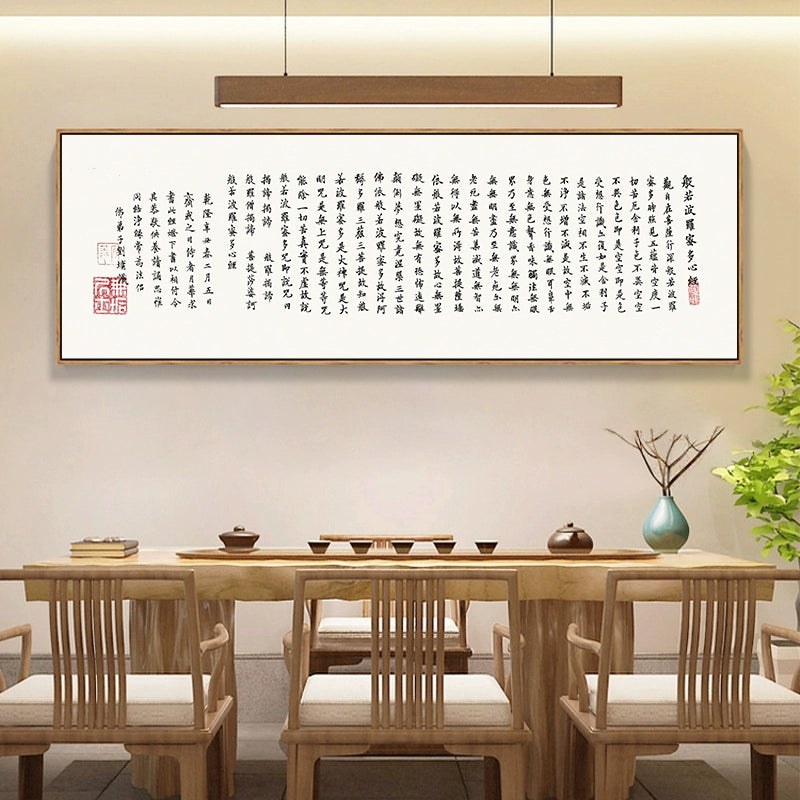 般若波羅蜜多心經
觀自在菩薩行深般若波羅
蜜多時照見五蘊皆空度一
切苦厄舍利子色不異空空
不異色色即是空空即是色
受想行識亦復如是舍利子
是諸法空相不生不滅不垢
不淨不增不減是故空中無
色無受想行識無眼耳鼻舌
身意無色聲香味觸法無眼
界乃至無意識界無無明亦
無無明盡乃至無老死亦無
老死盡無苦集滅道無智亦
無得以無所得故菩提薩埵
依般若波羅蜜多故心無罣
礙無罣礙故無有恐怖遠離
顛倒夢想究竟涅槃三世諸
佛依般若波羅蜜多故得阿
耨多羅三藐三菩提故知般
若波羅蜜多是大神咒是大
明咒是無上咒是無等等咒
能除一切苦真實不虛故說
般若波羅蜜多咒即說咒曰
揭諦揭諦 般羅揭諦
般羅僧揭諦 菩提莎婆訶
般若波羅蜜多心經
乾隆辛丑春二月五日
齋戒之日侍者月華求
書此經燈下書以相付令
其恭敬供養讀誦思惟
同結淨緣常為法侶
佛弟子劉墉